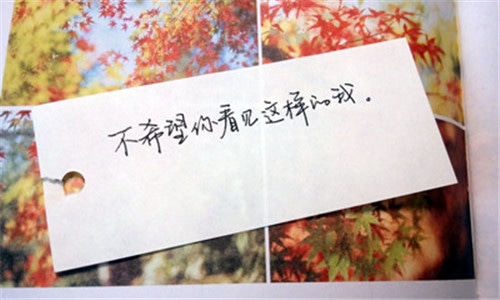 不希望你看见这样的我。